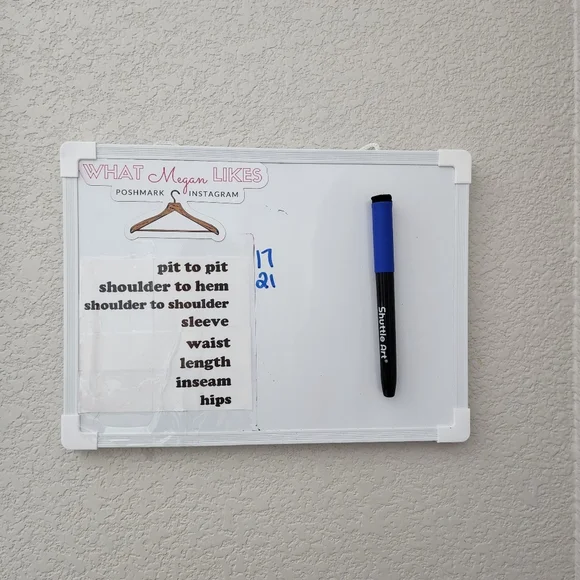 WHAT Megan LIKES
POSHMARK INSTAGRAM
pit to pit 17
shoulder to hem 21
shoulder to shoulder
sleeve
waist
length
inseam
hips
Shuttle Art®